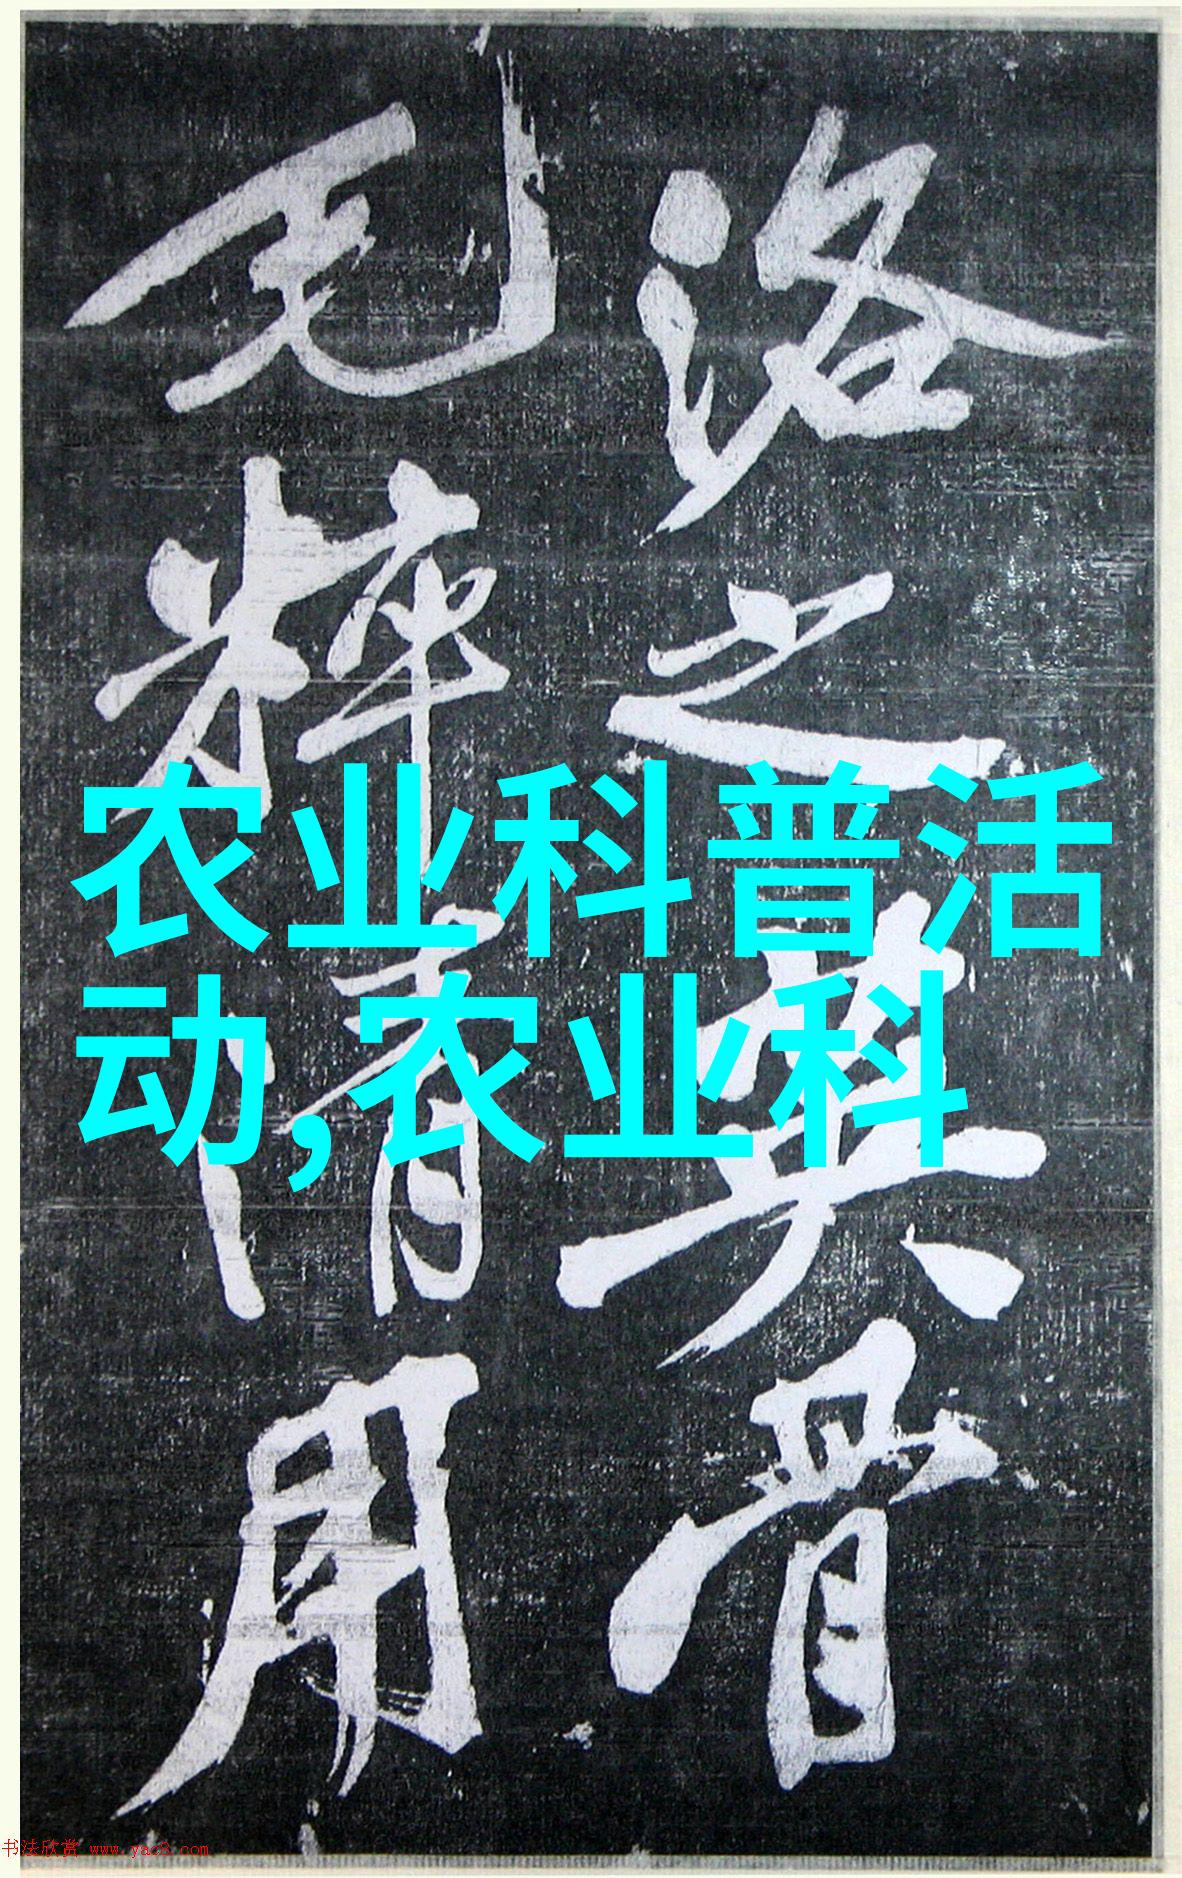 洛之英骨
毛粹清用
农业科普活
动,农业科
书法欣赏 www.yac8.com